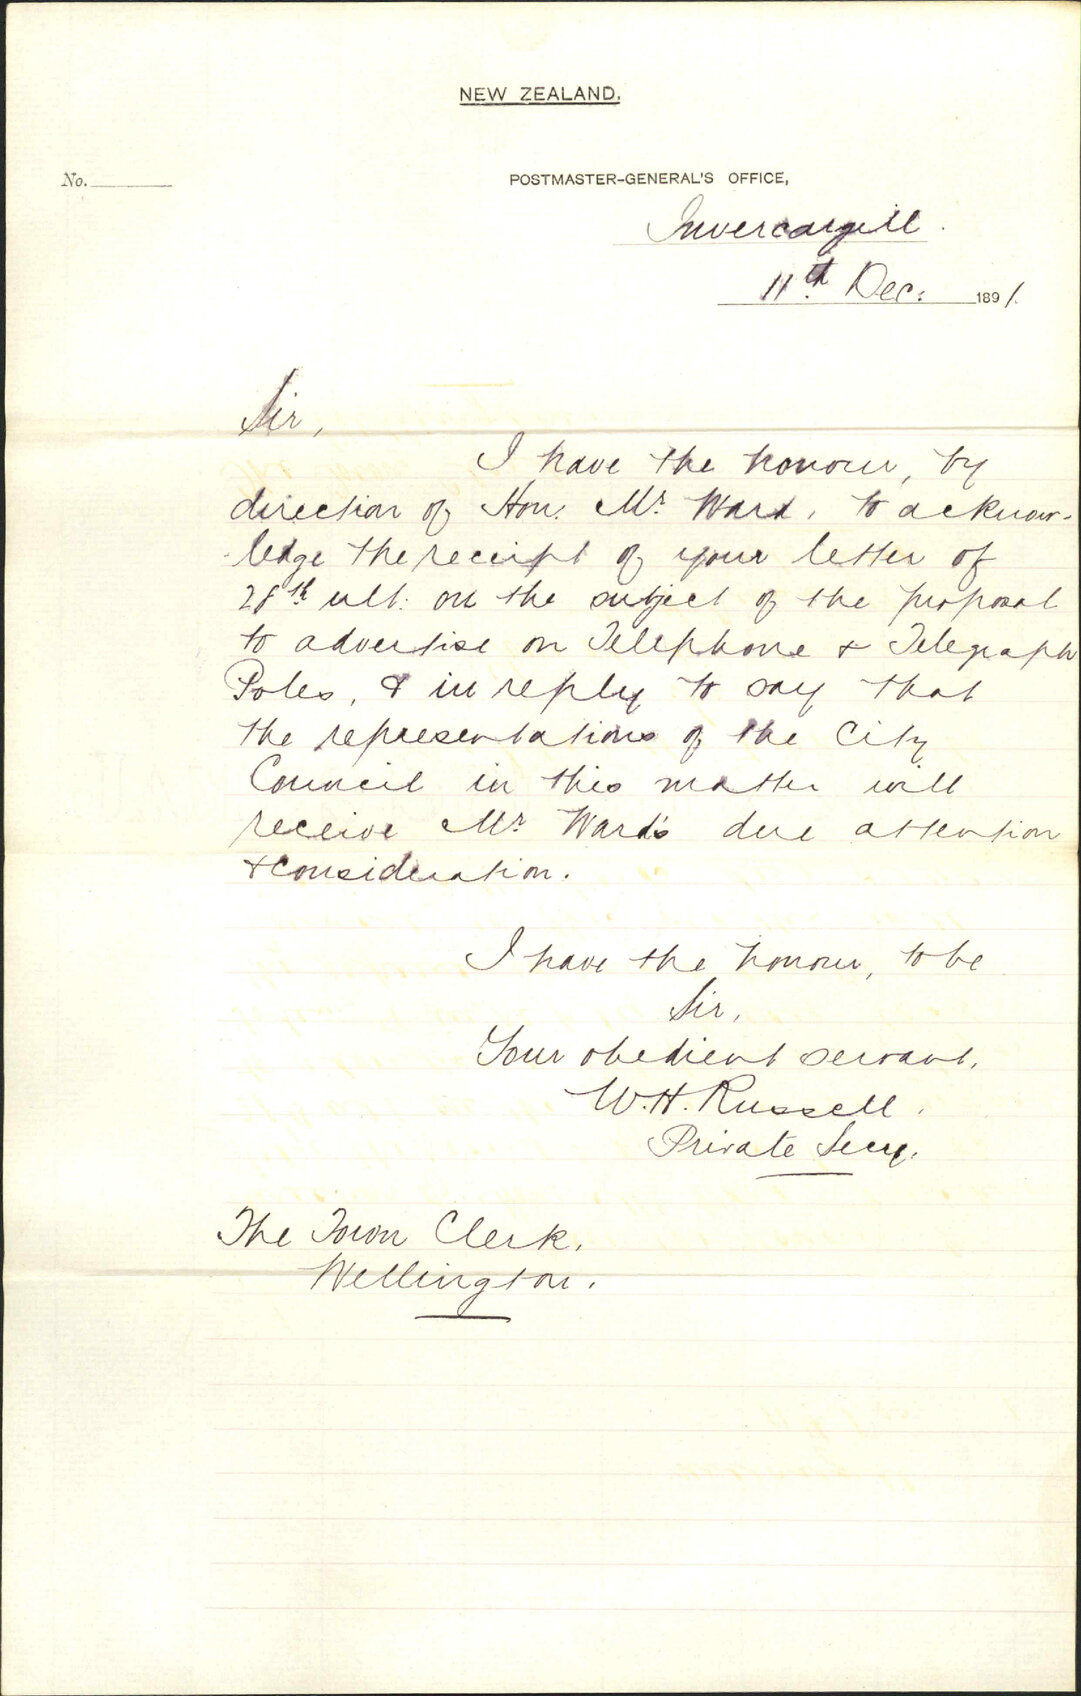 NEW ZEALAND.
No.
POSTMASTER-GENERAL'S OFFICE,
Invercargill.
11th Dec: 1891.
Sir,
I have the honour, by
direction of Hon: Mr Ward, to acknow-
-ledge the receipt of your letter of
28th ult: on the subject of the proposal
to advertise on Telephone & Telegraph
Poles, & in reply to say that
the representations of the City
Council in this matter will
receive Mr Ward's due attention
& consideration.
I have the honour, to be
Sir,
Your obedient servant,
W. H. Russell.
Private Secy.
The Town Clerk,
Wellington.